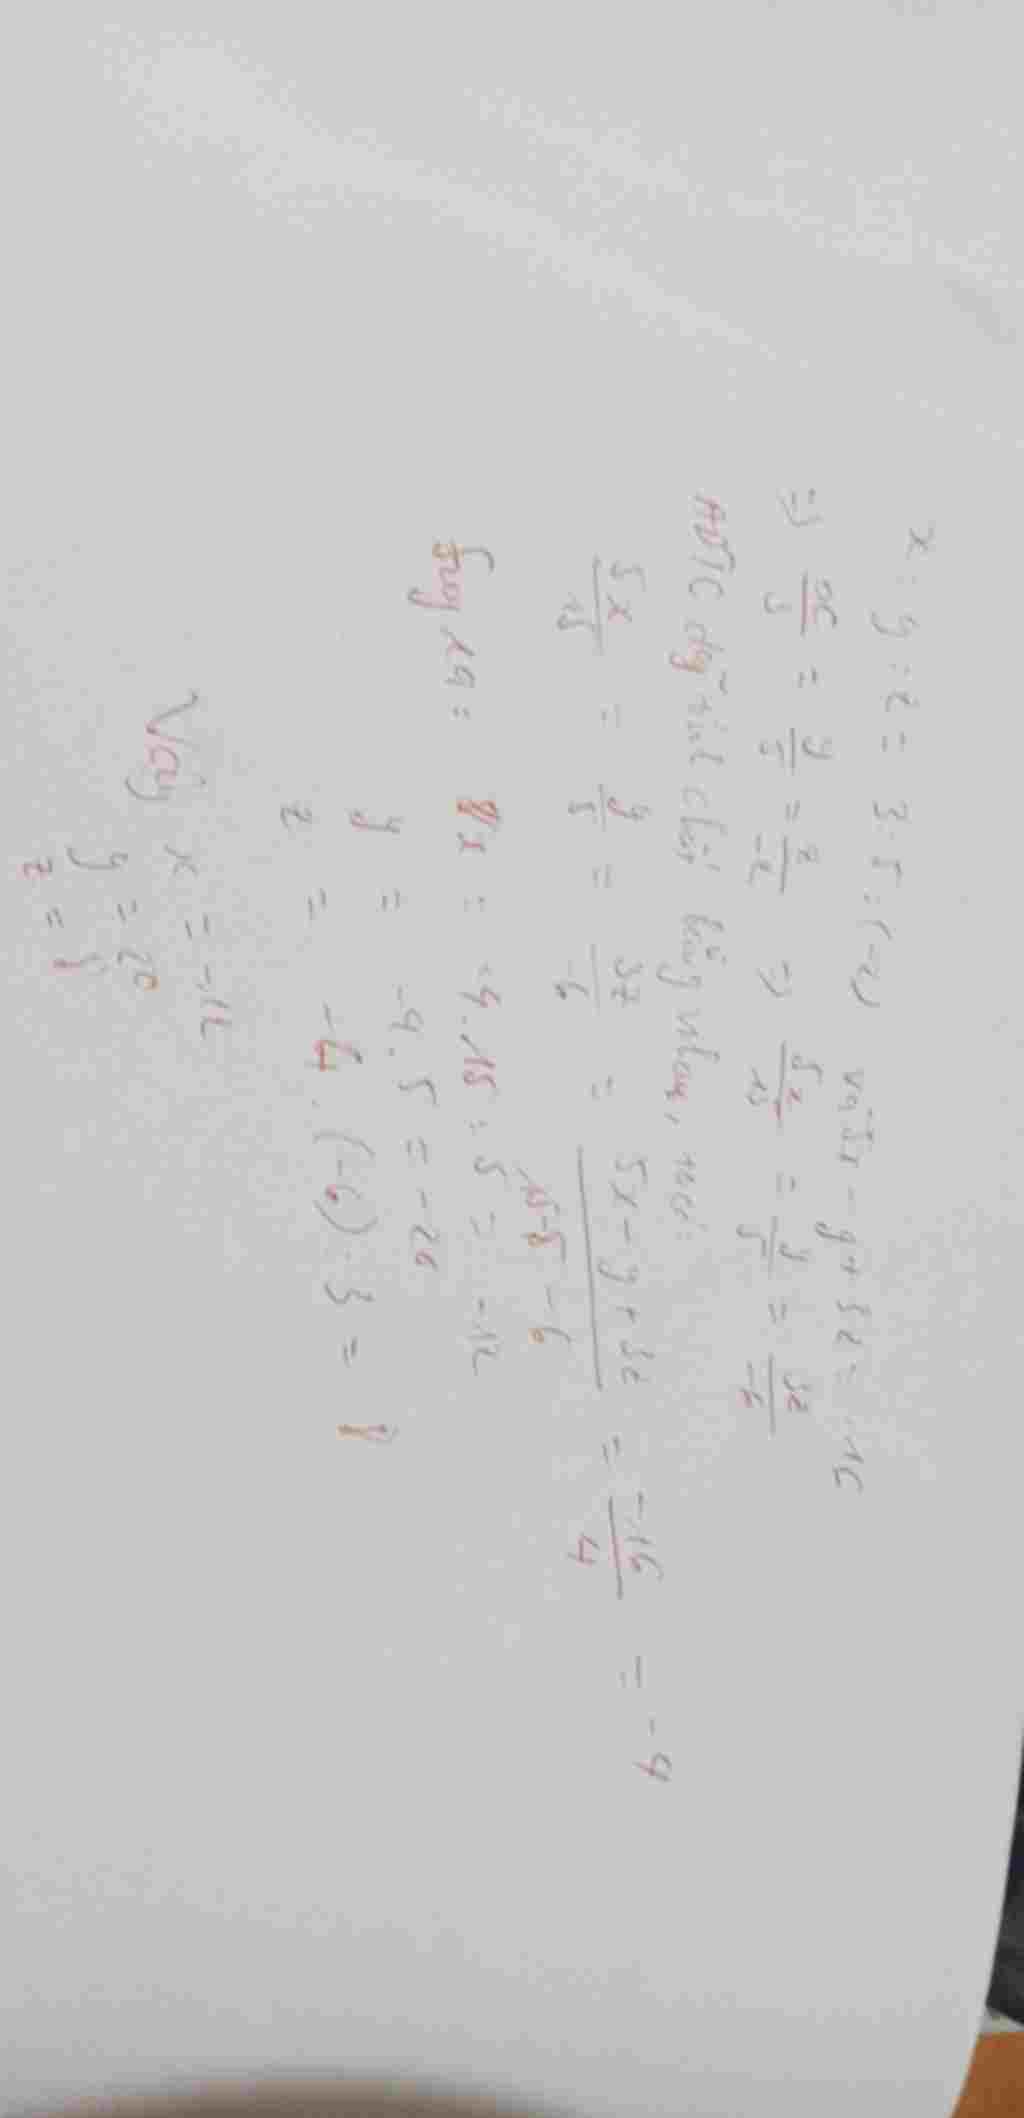 x : y : z = 3 : 5 : (-2) và 5x - y + 3z = -16
=> x/3 = y/5 = z/-2 => 5x/15 = y/5 = 3z/-6
ADTC dãy tỉ số bằng nhau, ta có:
5x/15 = y/5 = 3z/-6 = 5x - y + 3z / 15 - 5 - 6 = -16/4 = -4
Suy ra: x = -4 . 15 : 5 = -12
y = -4 . 5 = -20
z = -4 . (-6) : 3 = 8
Vậy x = -12
y = 20
z = 8